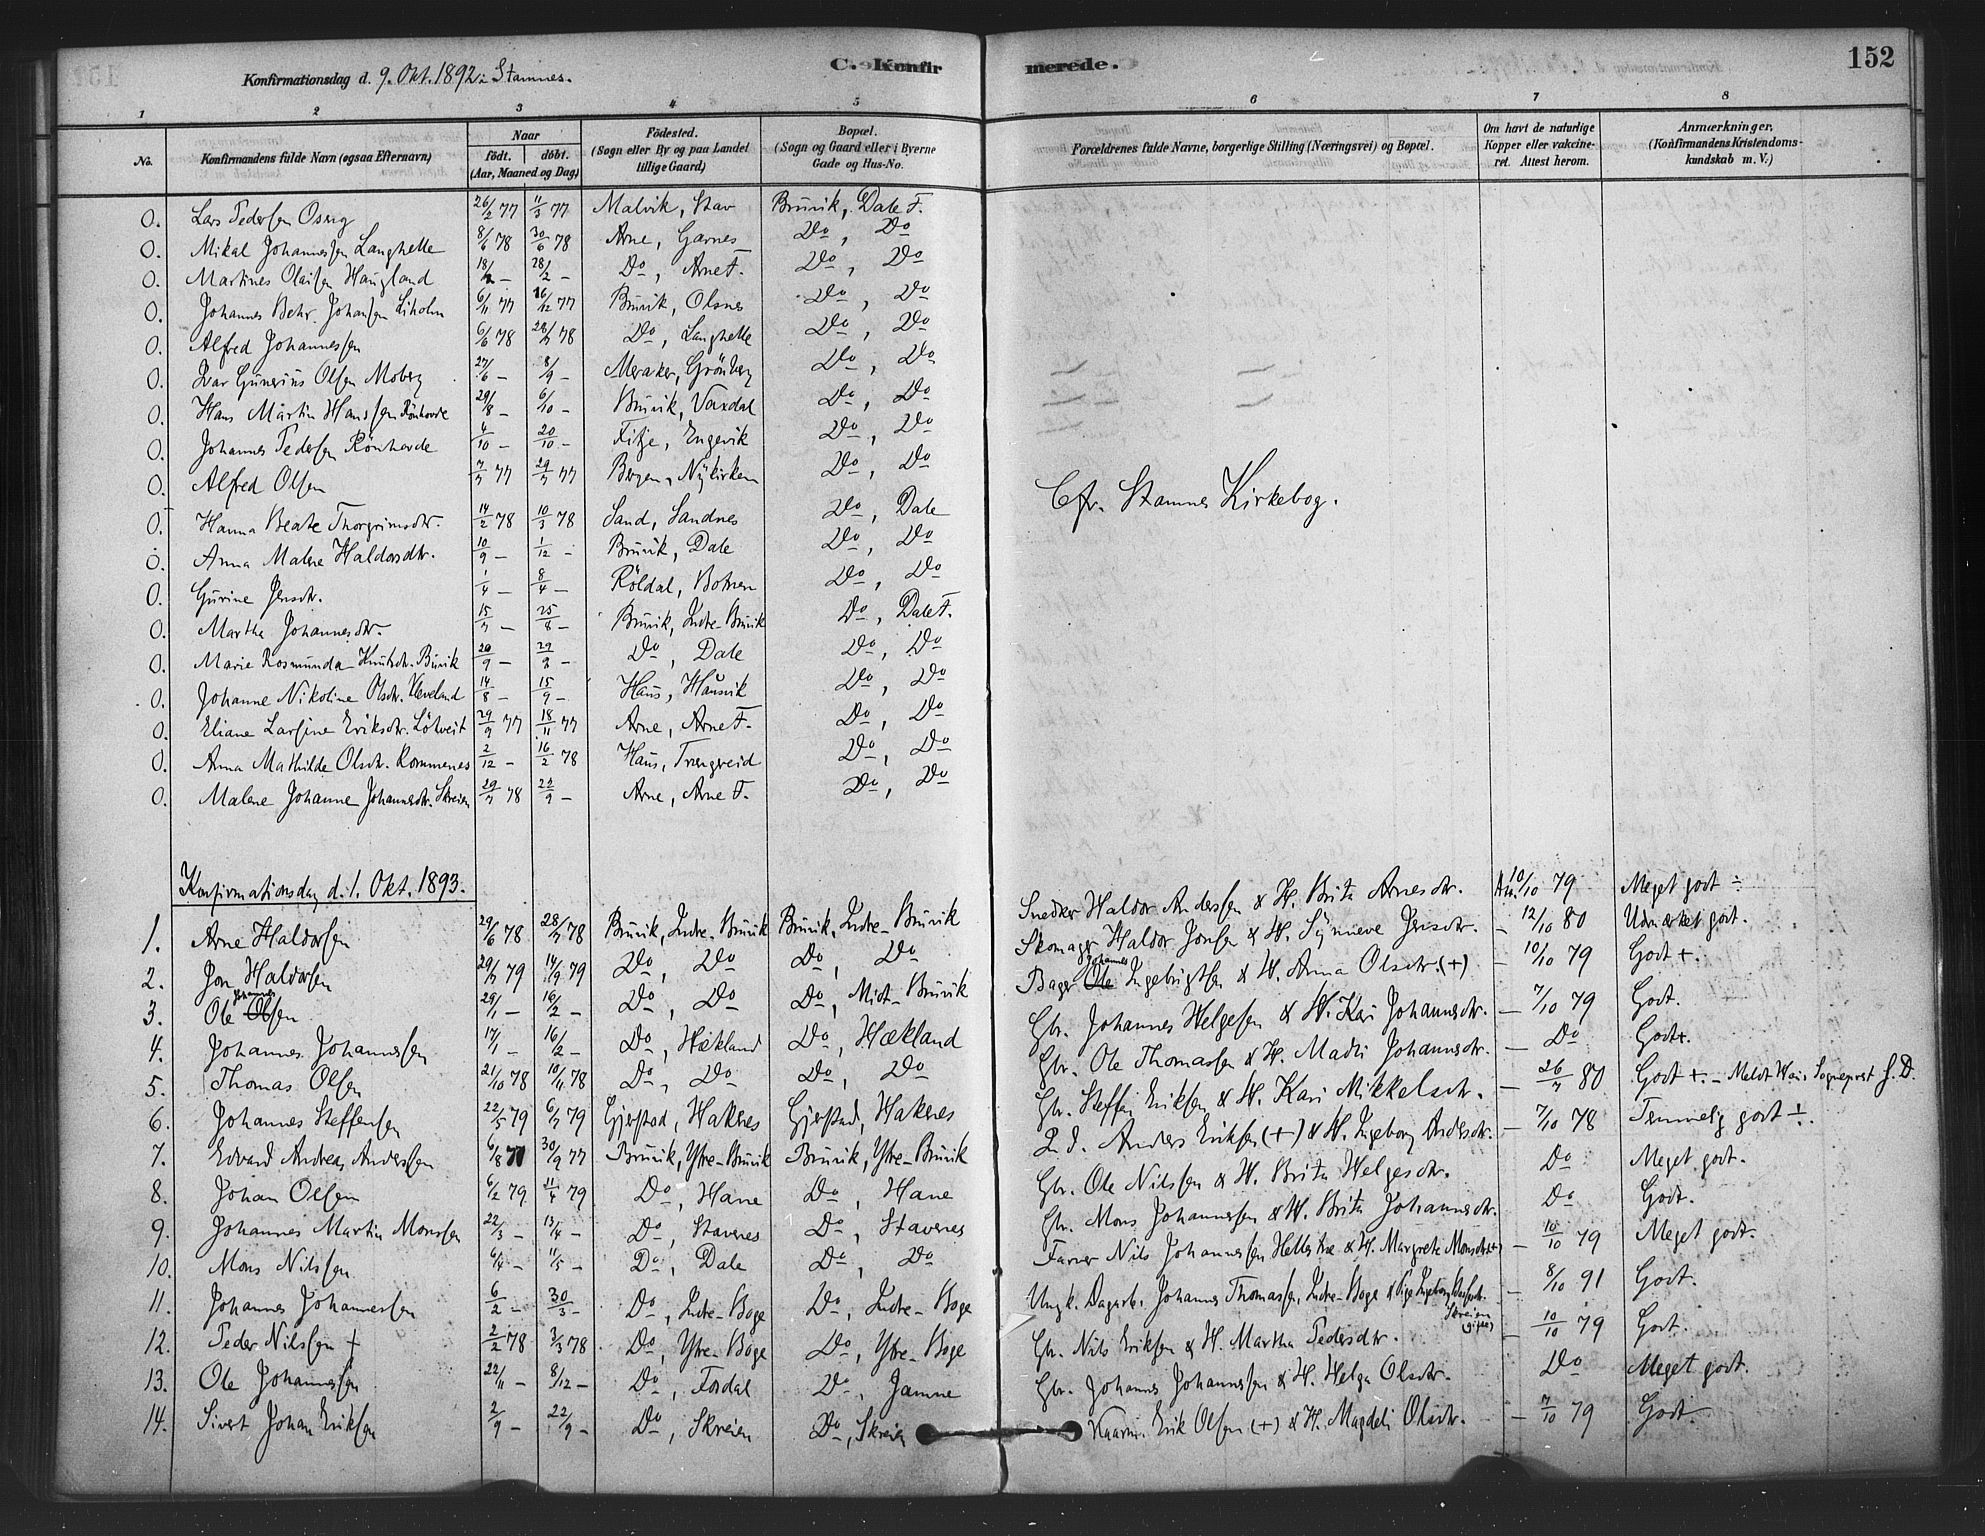 152
C. Konfirmerede.
Konfirmationsdag d. 9. Okt. 1892 i Stamnes.
1 2 3 4 5 6 7 8
No.
Konfirmandens fulde Navn (ogsaa Efternavn)
Naar
födt. döbt.
(Aar, Maaned og Dag)
Födested.
(Sogn eller By og paa Landet
tillige Gaard)
Bopæl.
(Sogn og Gaard eller i Byerne
Gade og Hus-No.
Forældrenes fulde Navne, borgerlige Stilling (Næringsvei) og Bopæl.
Om havt de naturlige
Kopper eller vakcine-
ret. Attest herom.
Anmærkninger.
(Konfirmandens Kristendoms-
kundskab m. V.)
0. Lars Pedersen 26/2 77 11/3 77 Malvik, Stav Bruvik, Dale F.
0. Mikal Johannessen Langhelle 8/6 78 30/6 78 Arne, Garnes Do, Do
0. Martines Olaisen Haugland 18/ – 28/2 – Do, Arne F. Do, Do
0. Johannes Behr. Johansen Liholm 6/11 77 16/12 77 Bruvik, Olsnes Do, Do
0. Alfred Johannessen 6/6 78 28/7 78 Do, Langhelle Do, Do
0. Ivar Gunerius Olsen Moberg 27/6 – 8/9 – Meraker, Grönberg Do, Do
0. Hans Martin Hanssen Rönhovde 29/8 – 6/10 – Bruvik, Vaxdal Do, Do
0. Johannes Pedersen Rönhovde 4/10 – 20/10 – Fitje, Engevik Do, Do
0. Alfred Olsen 7/7 77 29/7 77 Bergen, Nykirken Do, Do
0. Hanna Beate Thorgrimsdtr. 14/2 78 10/3 78 Sand, Sandnes Do, Dale
0. Anna Malene Haldorsdtr. 10/9 – 1/12 – Bruvik, Dale Do, Do
0. Gurine Jensdtr. 1/4 – 8/4 – Röldal, Botnen Do, Do
0. Martha Johannesdtr. 15/7 – 25/8 – Bruvik, Indre-Bruvik Do, Dale F.
0. Marie Rosmunda Knutsdtr. Bruvik 20/9 – 29/9 – Do, Dale Do, Do
0. Johanne Nikoline Olsdtr. Kleveland 14/8 – 15/9 – Haus, Hausvik Do, Do
0. Eliane Larsine Eriksdtr. Lötveit 29/9 77 18/11 77 Arne, Arne F. Do, Do
0. Anna Mathilde Olsdtr. Rommenes 2/12 – 16/2 78 Haus, Trengereid Do, Do
0. Malene Johanne Johannesdtr. Skreien 29/7 78 22/9 – Arne, Arne F. Do, Do
Cfr. Stamnes Kirkebog.
Konfirmationsdag d. 1. Okt. 1893.
1. Arne Haldorsen 29/6 78 28/7 78 Bruvik, Indre-Bruvik Bruvik, Indre-Bruvik Snedker Haldor Anderssen & H. Brita Arnesdtr. Att. 10/10 79 Meget godt ÷
2. Jon Haldorsen 29/7 79 14/9 79 Do, Do Do, Do Skomager Haldor Jonsen & H. Synneve Jensdtr. – 12/10 80 Udmærket godt.
3. Ole Johannes Olsen 29/1 – 16/2 – Do, Do Do, Midt-Bruvik Bager Ole Johannes Ingebrigtsen & H. Anna Olsdtr. (+) – 10/10 79 Godt +.
4. Johannes Johannessen 17/1 – 16/2 – Do, Hækland Do, Hækland Gbr. Johannes Helgesen & H. Kari Johannesdtr. – 7/10 79 Godt.
5. Thomas Olsen 21/10 78 10/11 78 Do, Do Do, Do Gbr. Ole Thomassen & H. Madli Johannesdtr. – Do Godt+.
6. Johannes Steffensen 22/5 79 6/7 79 Gjerstad, Haknes Gjerstad, Haknes Gbr. Steffen Eriksen & H. Kari Mikkelsdtr. – 26/7 80 Godt +. – Meldt Haus Sogneprest s. D.
7. Edvard Andreas Anderssen 6/8 77 30/9 77 Bruvik, Ytre-Bruvik Bruvik, Ytre-Bruvik Anders Eriksen (+) & H. Ingeborg Andersdtr. – 7/10 78 Temmelig godt ÷.
8. Johan Olsen 6/2 79 11/4 79 Do, Hane Do, Hane Gbr. Ole Nilssen & H. Brita Helgesdtr. Do Meget godt.
9. Johannes Martin Monssen 22/3 – 13/4 – Do, Stavenes Do, Stavenes Gbr. Mons Johannessen & H. Brita Johannesdtr. Do Godt.
10. Mons Nilssen 6/4 – 11/5 – Do, Dale Do, Do Farver Nils Johannessen Hellestræ & H. Margrete Monsdtr(+) – 10/10 79 Meget godt.
11. Johannes Johannessen 6/2 – 30/3 – Do, Indre-Boge Do, Indre-Boge Ungk. Dagarb. Johannes Thomassen, Indre-Boge & Pige Ingeborg Skreien (gift) – 8/10 91 Godt.
12. Peder Nilssen + 2/2 78 3/3 78 Do, Ytre-Boge Do, Ytre-Boge Gbr. Nils Eriksen & H. Martha Pedersdtr. – 10/10 79 Godt.
13. Ole Johannessen 22/11 – 8/12 – Do, Fosdal Do, Jamne Gbr. Johannes Johannessen & H. Helga Olsdtr. Do Meget godt.
14. Sivert Johan Eriksen 2/9 – 22/9 – Do, Skreien Do, Skreien Erik Olsen (+) & H. Magdeli Olsdtr. – 7/10 79 Godt.